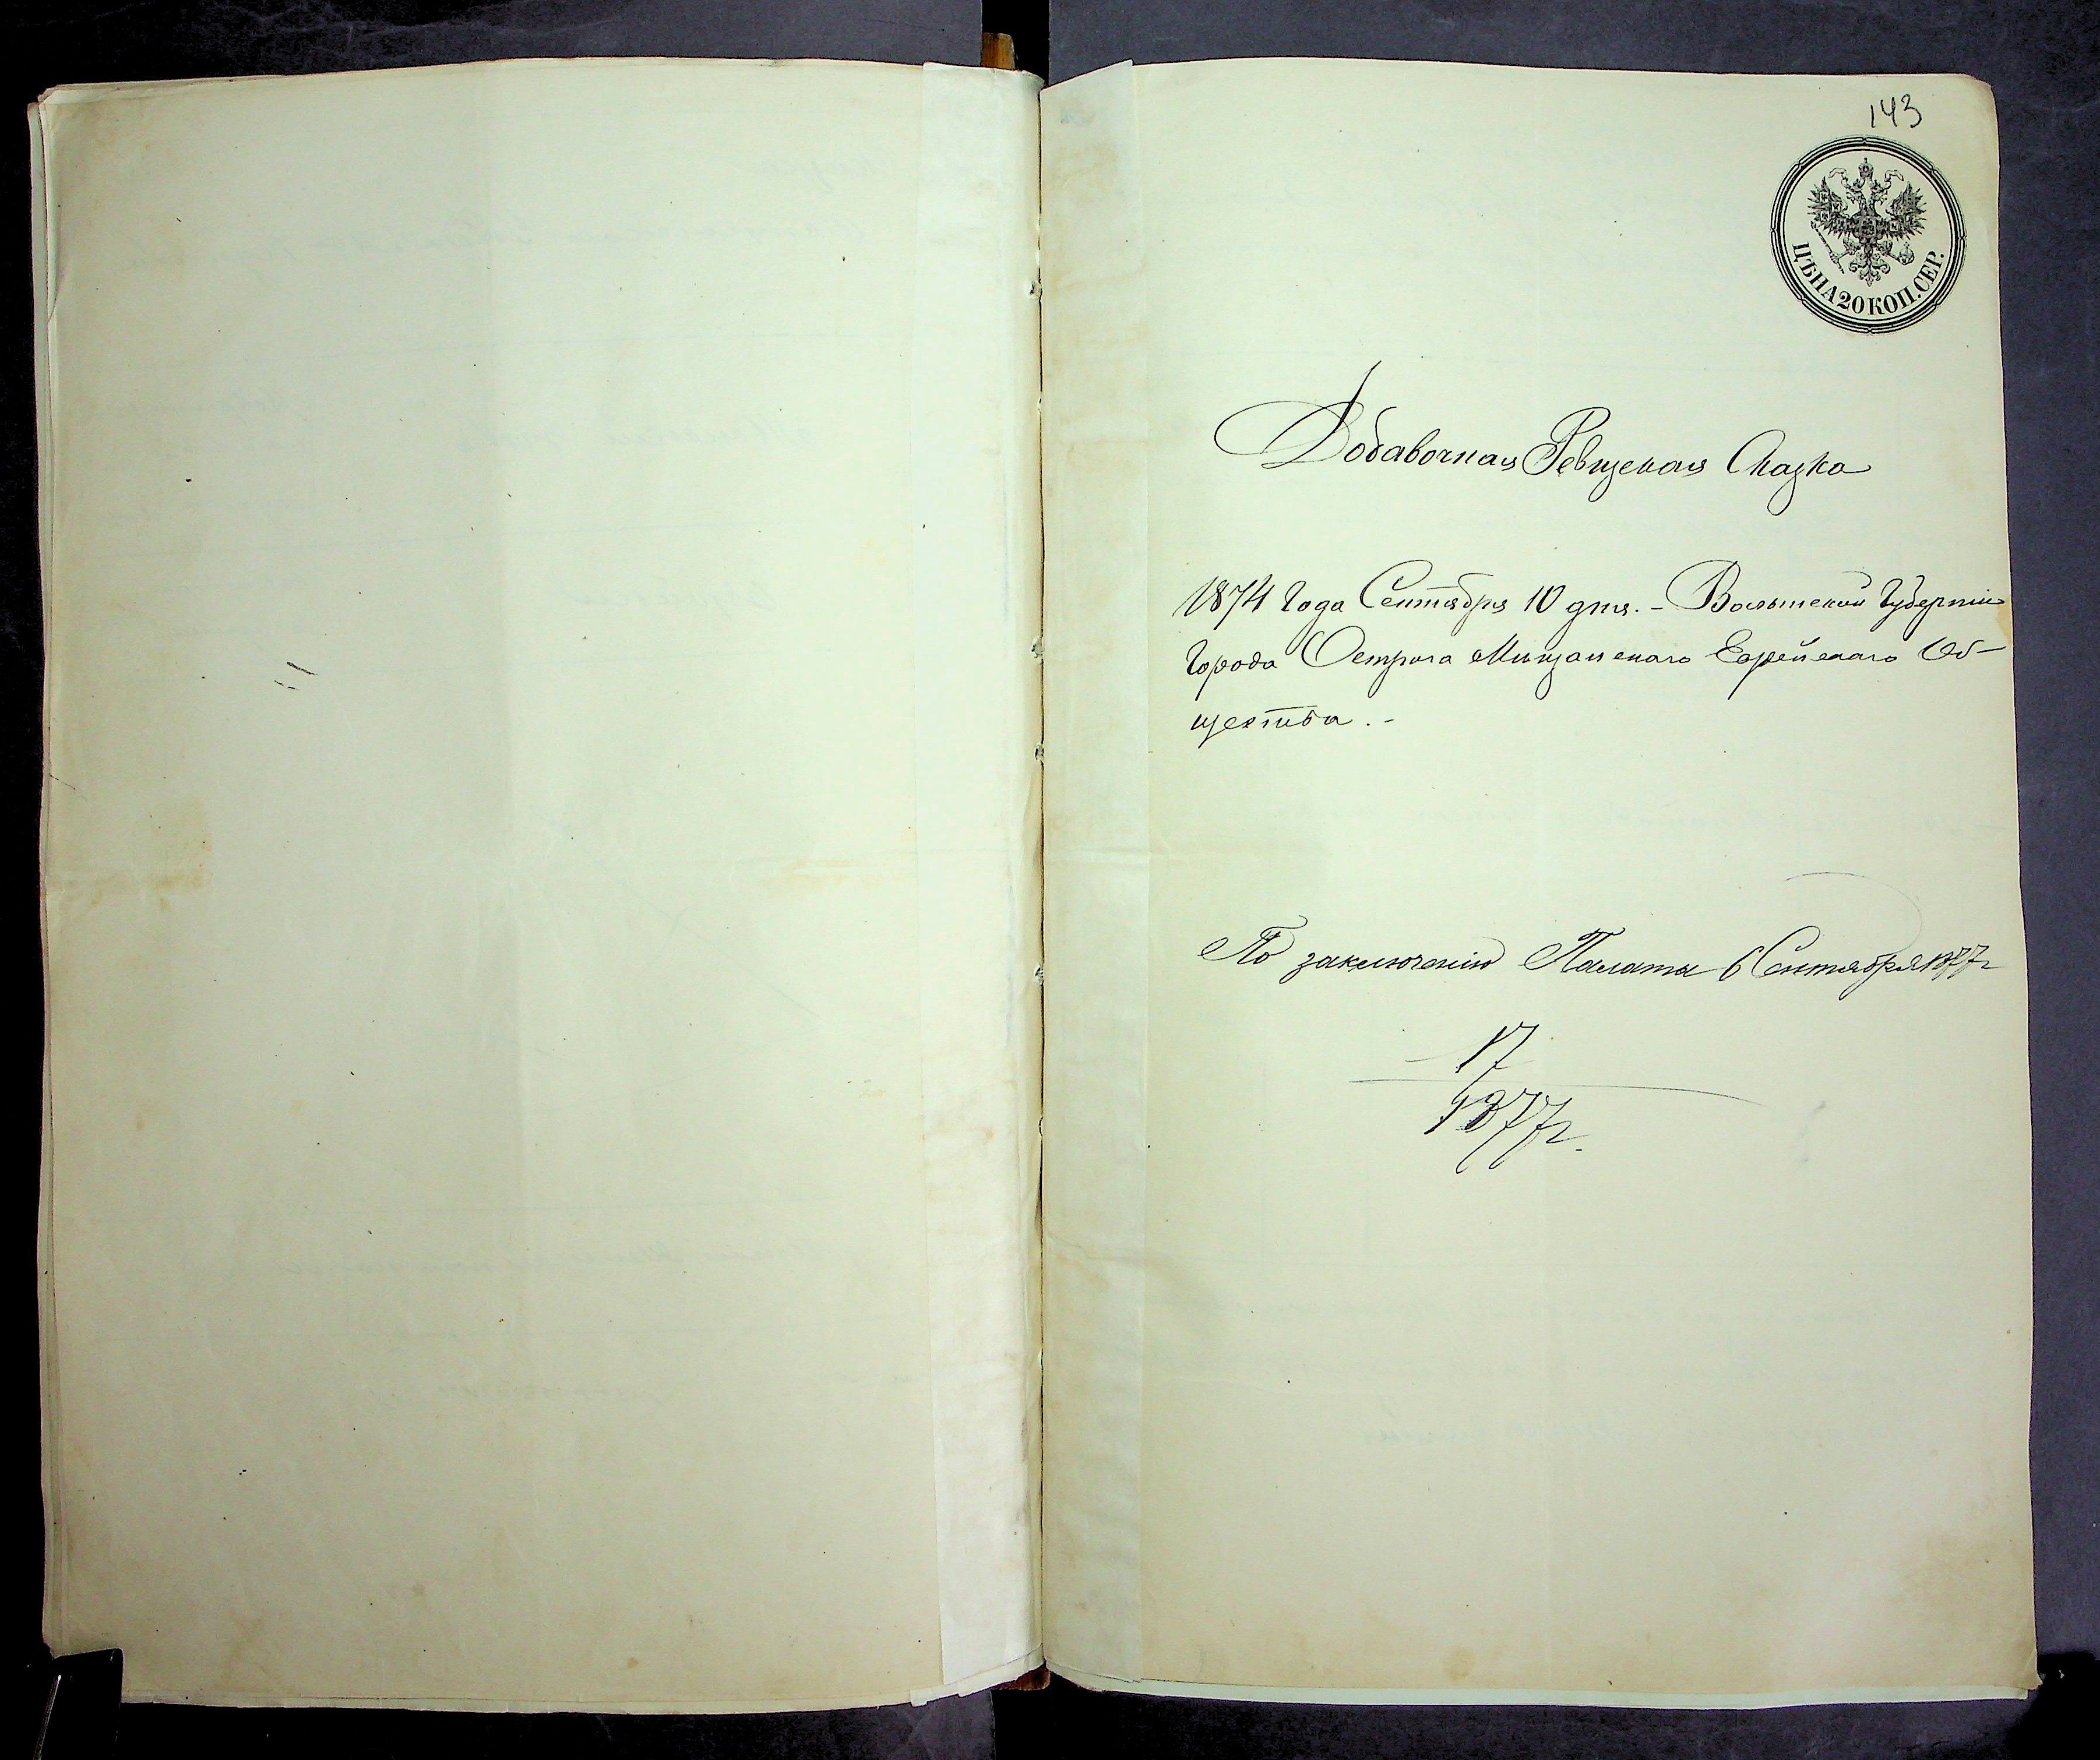 143
ЦѢНА 20 КОП. СЕР.
Добавочная Ревизская Сказка
1874 Года Сентября 10 дня. - Волынской Губерніи
Города Острога Мѣщанскаго Еврейскаго Об-
щества. -
По заключенію Палаты 6 Сентября 1877 г
17
1877 г.